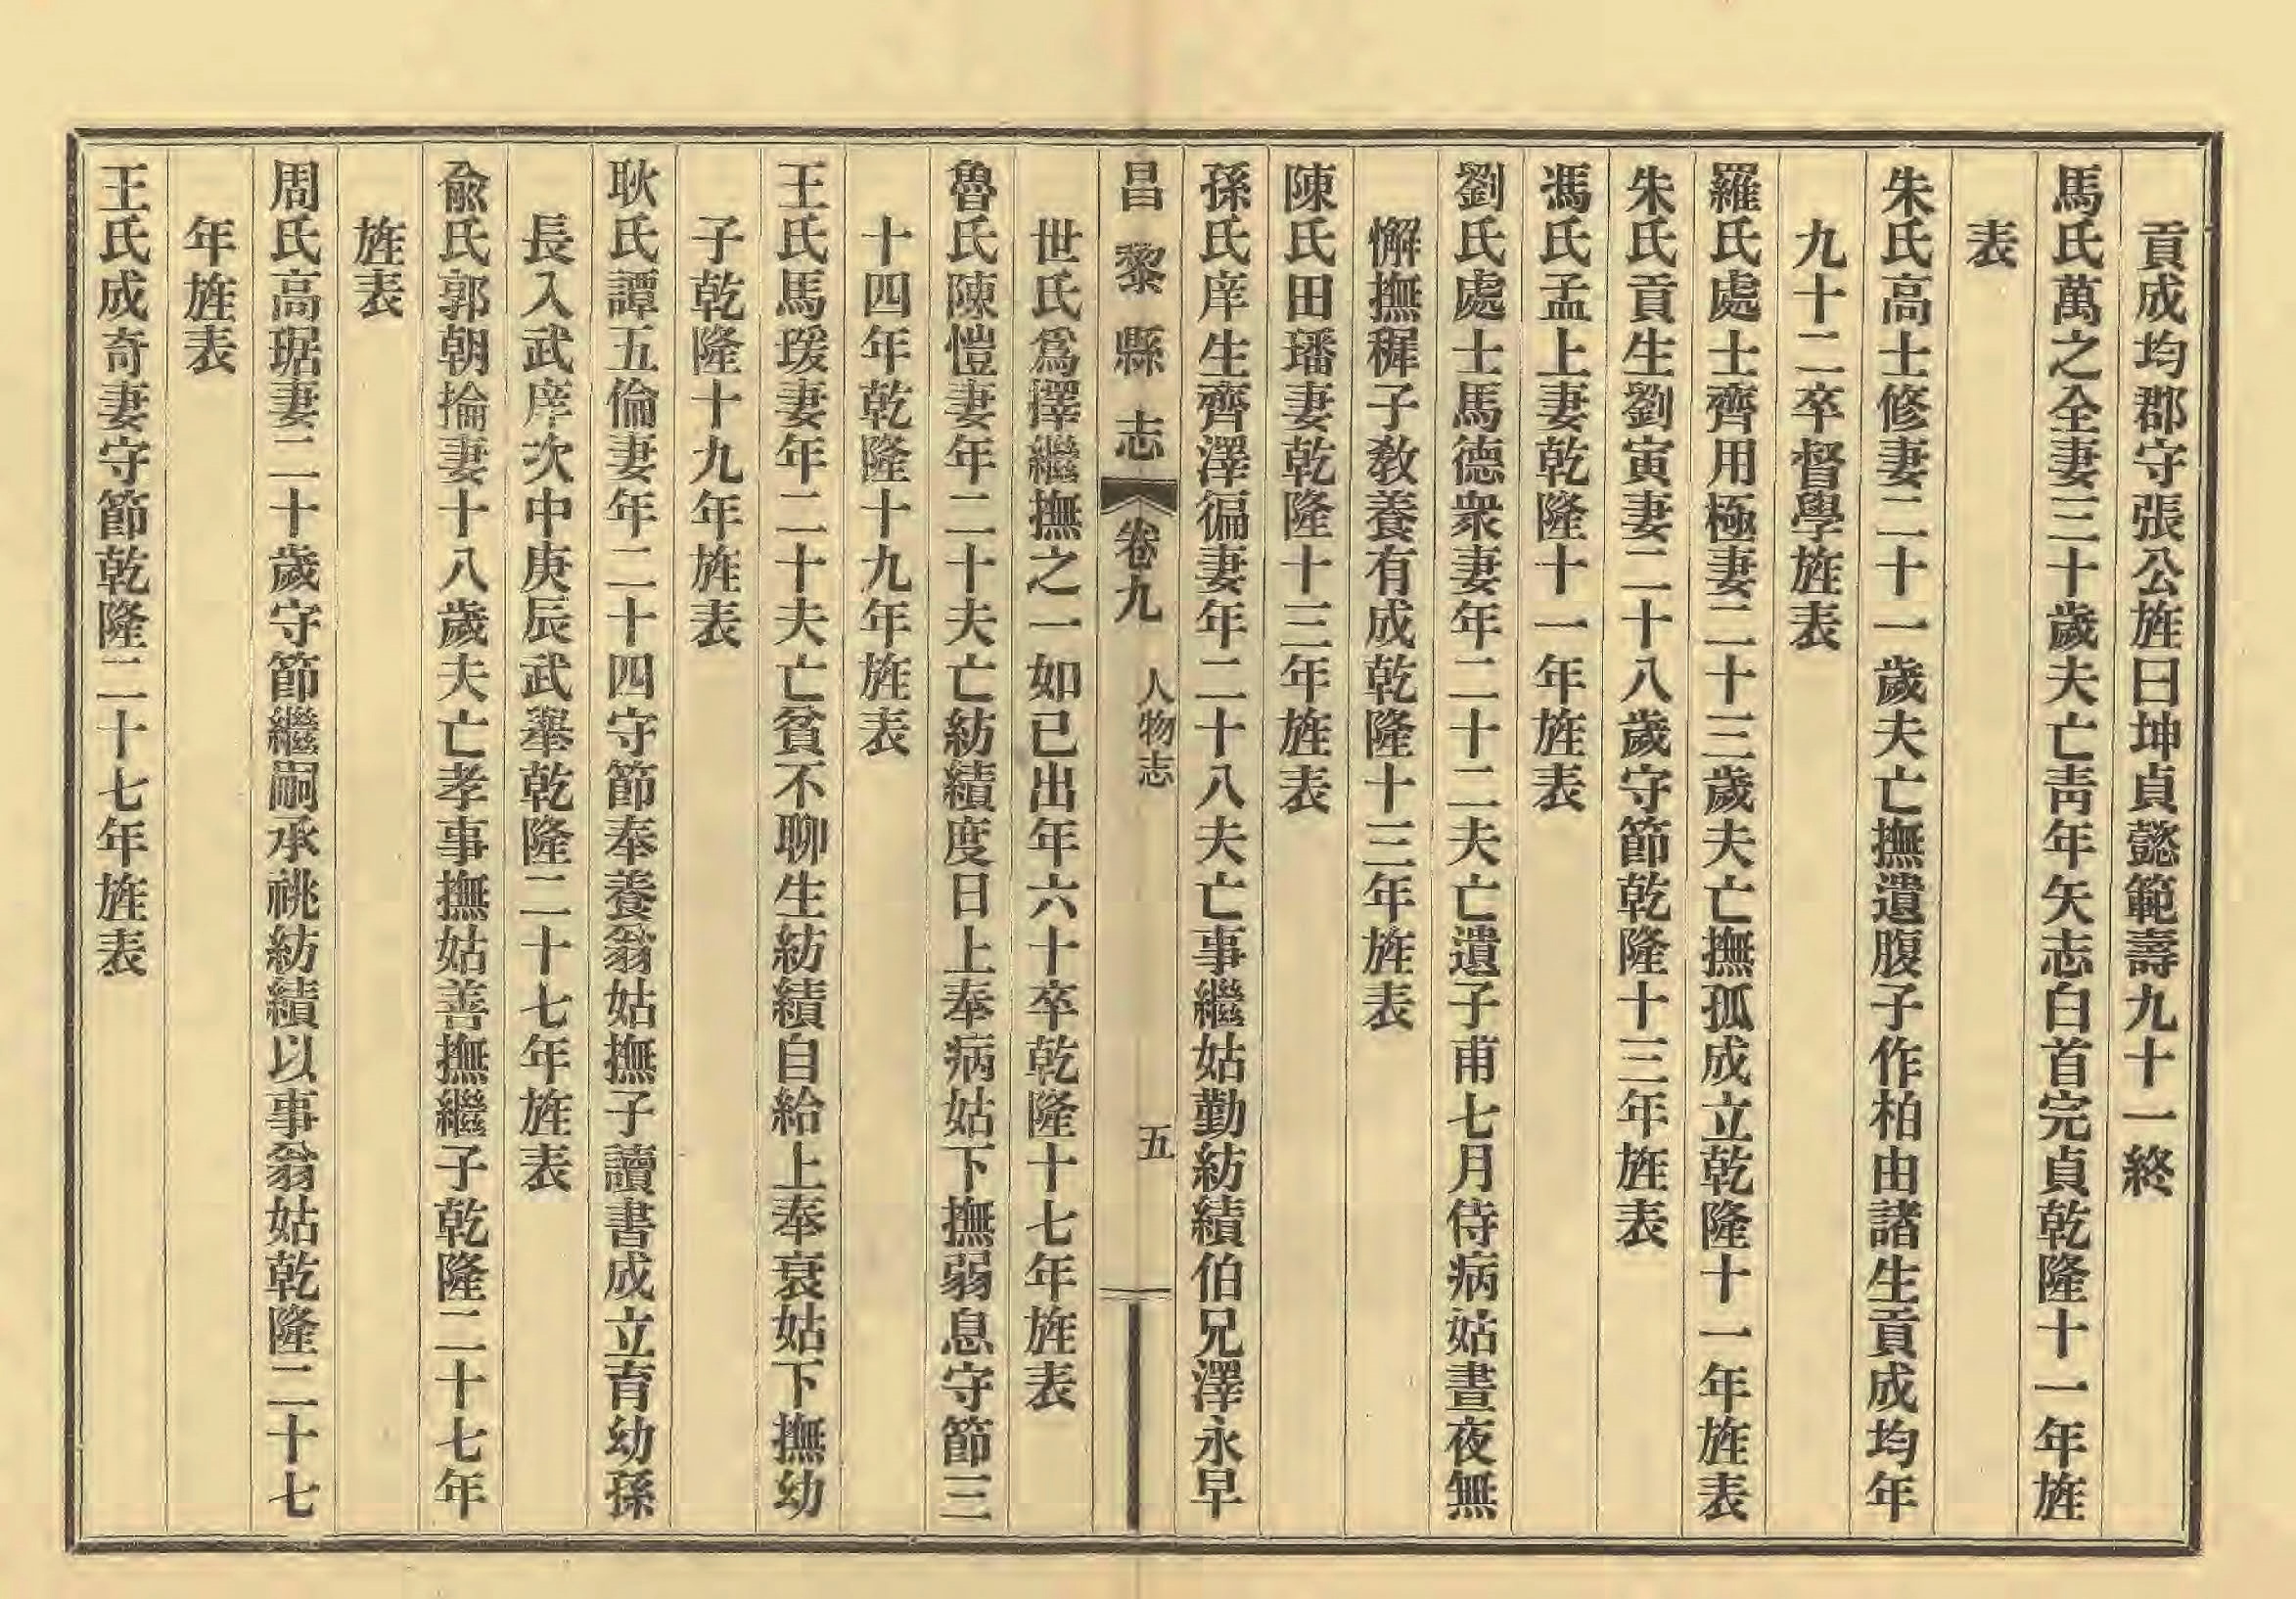 貢成均郡守張公旌曰坤貞懿範壽九十一終
馬氏萬之全妻三十歲夫亡靑年矢志白首完貞乾隆十一年旌
表
朱氏高士修妻二十一歲夫亡撫遺腹子作柏由諸生貢成均年
九十二卒督學旌表
羅氏處士齊用極妻二十三歲夫亡撫孤成立乾隆十一年旌表
朱氏貢生劉寅妻二十八歲守節乾隆十三年旌表
馮氏孟上妻乾隆十一年旌表
劉氏處士馬德衆妻年二十二夫亡遺子甫七月侍病姑晝夜無
懈撫穉子敎養有成乾隆十三年旌表
陳氏田璠妻乾隆十三年旌表
孫氏庠生齊澤徧妻年二十八夫亡事繼姑勤紡績伯兄澤永早
昌黎縣志 卷九 人物志 五
世氏爲擇繼撫之一如已出年六十卒乾隆十七年旌表
魯氏陳愷妻年二十夫亡紡績度日上奉病姑下撫弱息守節三
十四年乾隆十九年旌表
王氏馬瑗妻年二十夫亡貧不聊生紡績自給上奉衰姑下撫幼
子乾隆十九年旌表
耿氏譚五倫妻年二十四守節奉養翁姑撫子讀書成立育幼孫
長入武庠次中庚辰武舉乾隆二十七年旌表
兪氏郭朝掄妻十八歲夫亡孝事撫姑善撫繼子乾隆二十七年
旌表
周氏高琚妻二十歲守節繼嗣承祧紡績以事翁姑乾隆二十七
年旌表
王氏成奇妻守節乾隆二十七年旌表